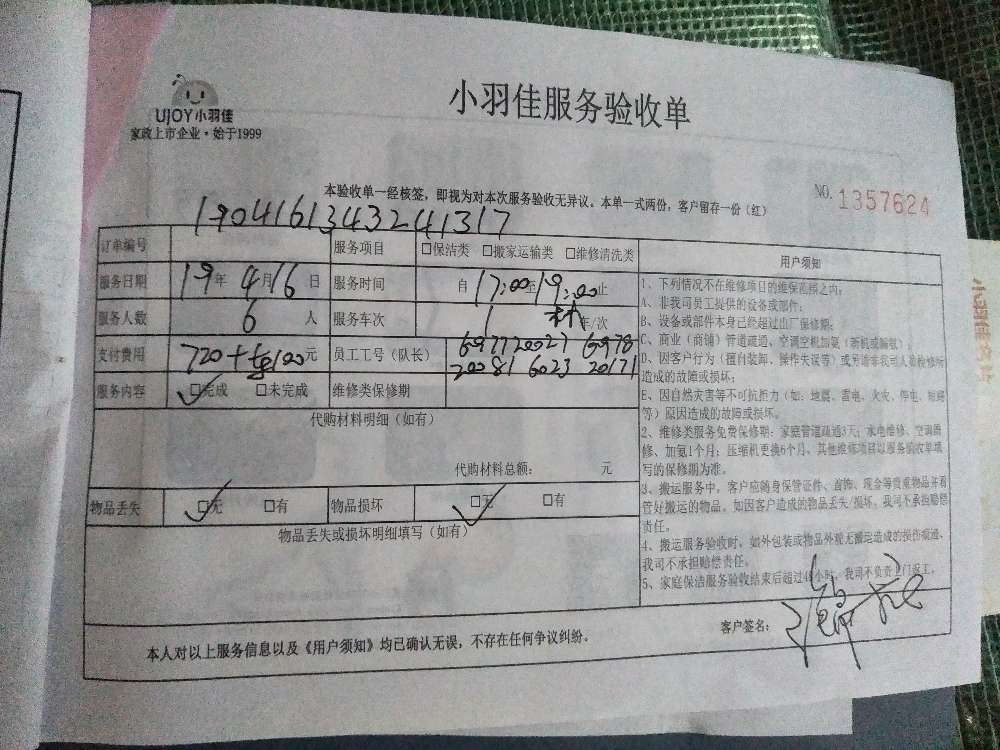 UJOY小羽佳
家政上市企业·始于1999
小羽佳服务验收单
本验收单一经核签，即视为对本次服务验收无异议。本单一式两份，客户留存一份（红）
NO. 1357624
19041613432413​17
订单编号 服务项目 □保洁类 □搬家运输类 □维修清洗类
服务日期 19年4月16日 服务时间 自17:00至19:00止
服务人数 6人 服务车次 1 年/次
支付费用 720+ 100元 员工工号（队长） 697720027 6978
20081 6023 20171
服务内容 □完成 □未完成 维修类保修期
代购材料明细（如有）
代购材料总额： 元
物品丢失 □无 □有 物品损坏 □无 □有
物品丢失或损坏明细填写（如有）
用户须知
1、下列情况不在维修项目的维保范畴之内：
A、非我司员工提供的设备或部件；
B、设备或部件本身已经超过出厂保修期；
C、商业（商铺）管道疏通、空调空机加氨（新机或漏氨）；
D、因客户行为（擅自装卸、操作失误等）或另请非我司人员检修所
造成的故障或损坏；
E、因自然灾害等不可抗拒力（如：地震、雷电、火灾、停电、短路
等）原因造成的故障或损坏。
2、维修类服务免费保修期：家庭管道疏通3天；水电维修、空调维
修、加氨1个月；压缩机更换6个月、其他维修项目以服务验收单填
写的保修期为准。
3、搬运服务中，客户应随身保管证件、首饰、现金等贵重物品并看
管好搬运的物品。如因客户造成的物品丢失/损坏，我司不承担赔偿
责任。
4、搬运服务验收时，如外包装或物品外观无搬运造成的损伤痕迹，
我司不承担赔偿责任。
5、家庭保洁服务验收结束后超过48小时，我司不负责上门返工。
客户签名：
本人对以上服务信息以及《用户须知》均已确认无误，不存在任何争议纠纷。